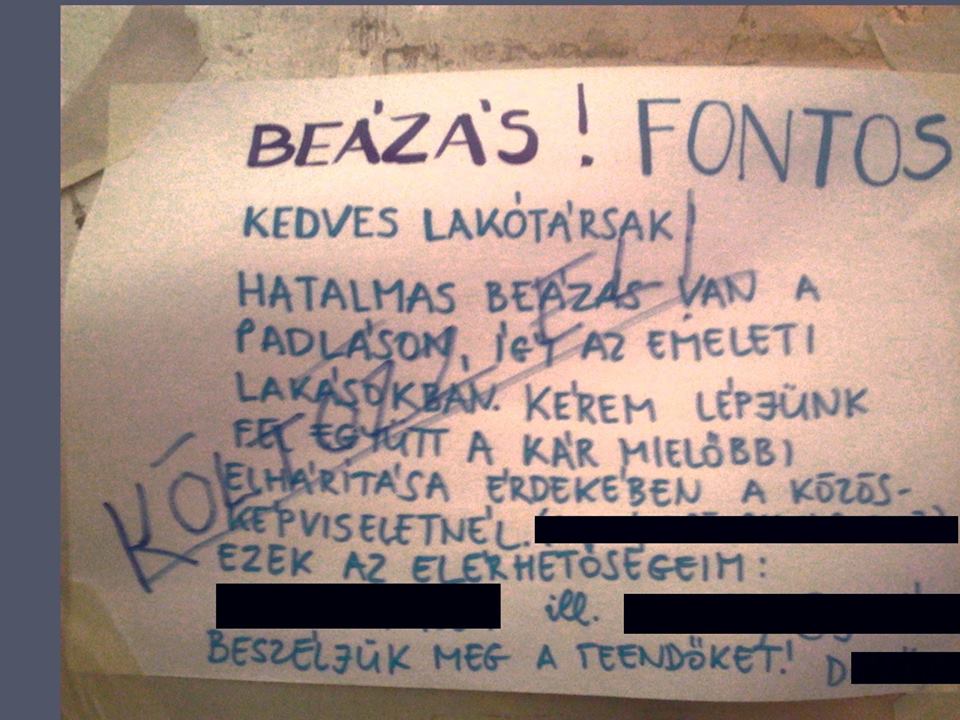 BEÁZÁS! FONTOS
KEDVES LAKÓTÁRSAK!
HATALMAS BEÁZÁS VAN A
PADLÁSON, ÍGY AZ EMELETI
LAKÁSOKBAN. KÉREM LÉPJÜNK
FEL EGYÜTT A KÁR MIELŐBBI
ELHÁRÍTÁSA ÉRDEKÉBEN A KÖZÖS-
KÉPVISELETNÉL.
EZEK AZ ELÉRHETŐSÉGEIM:
ill.
BESZÉLJÜK MEG A TEENDŐKET!
D
KÖLTÖZZ EL!